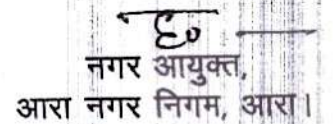 ह०
नगर आयुक्त,
आरा नगर निगम, आरा।